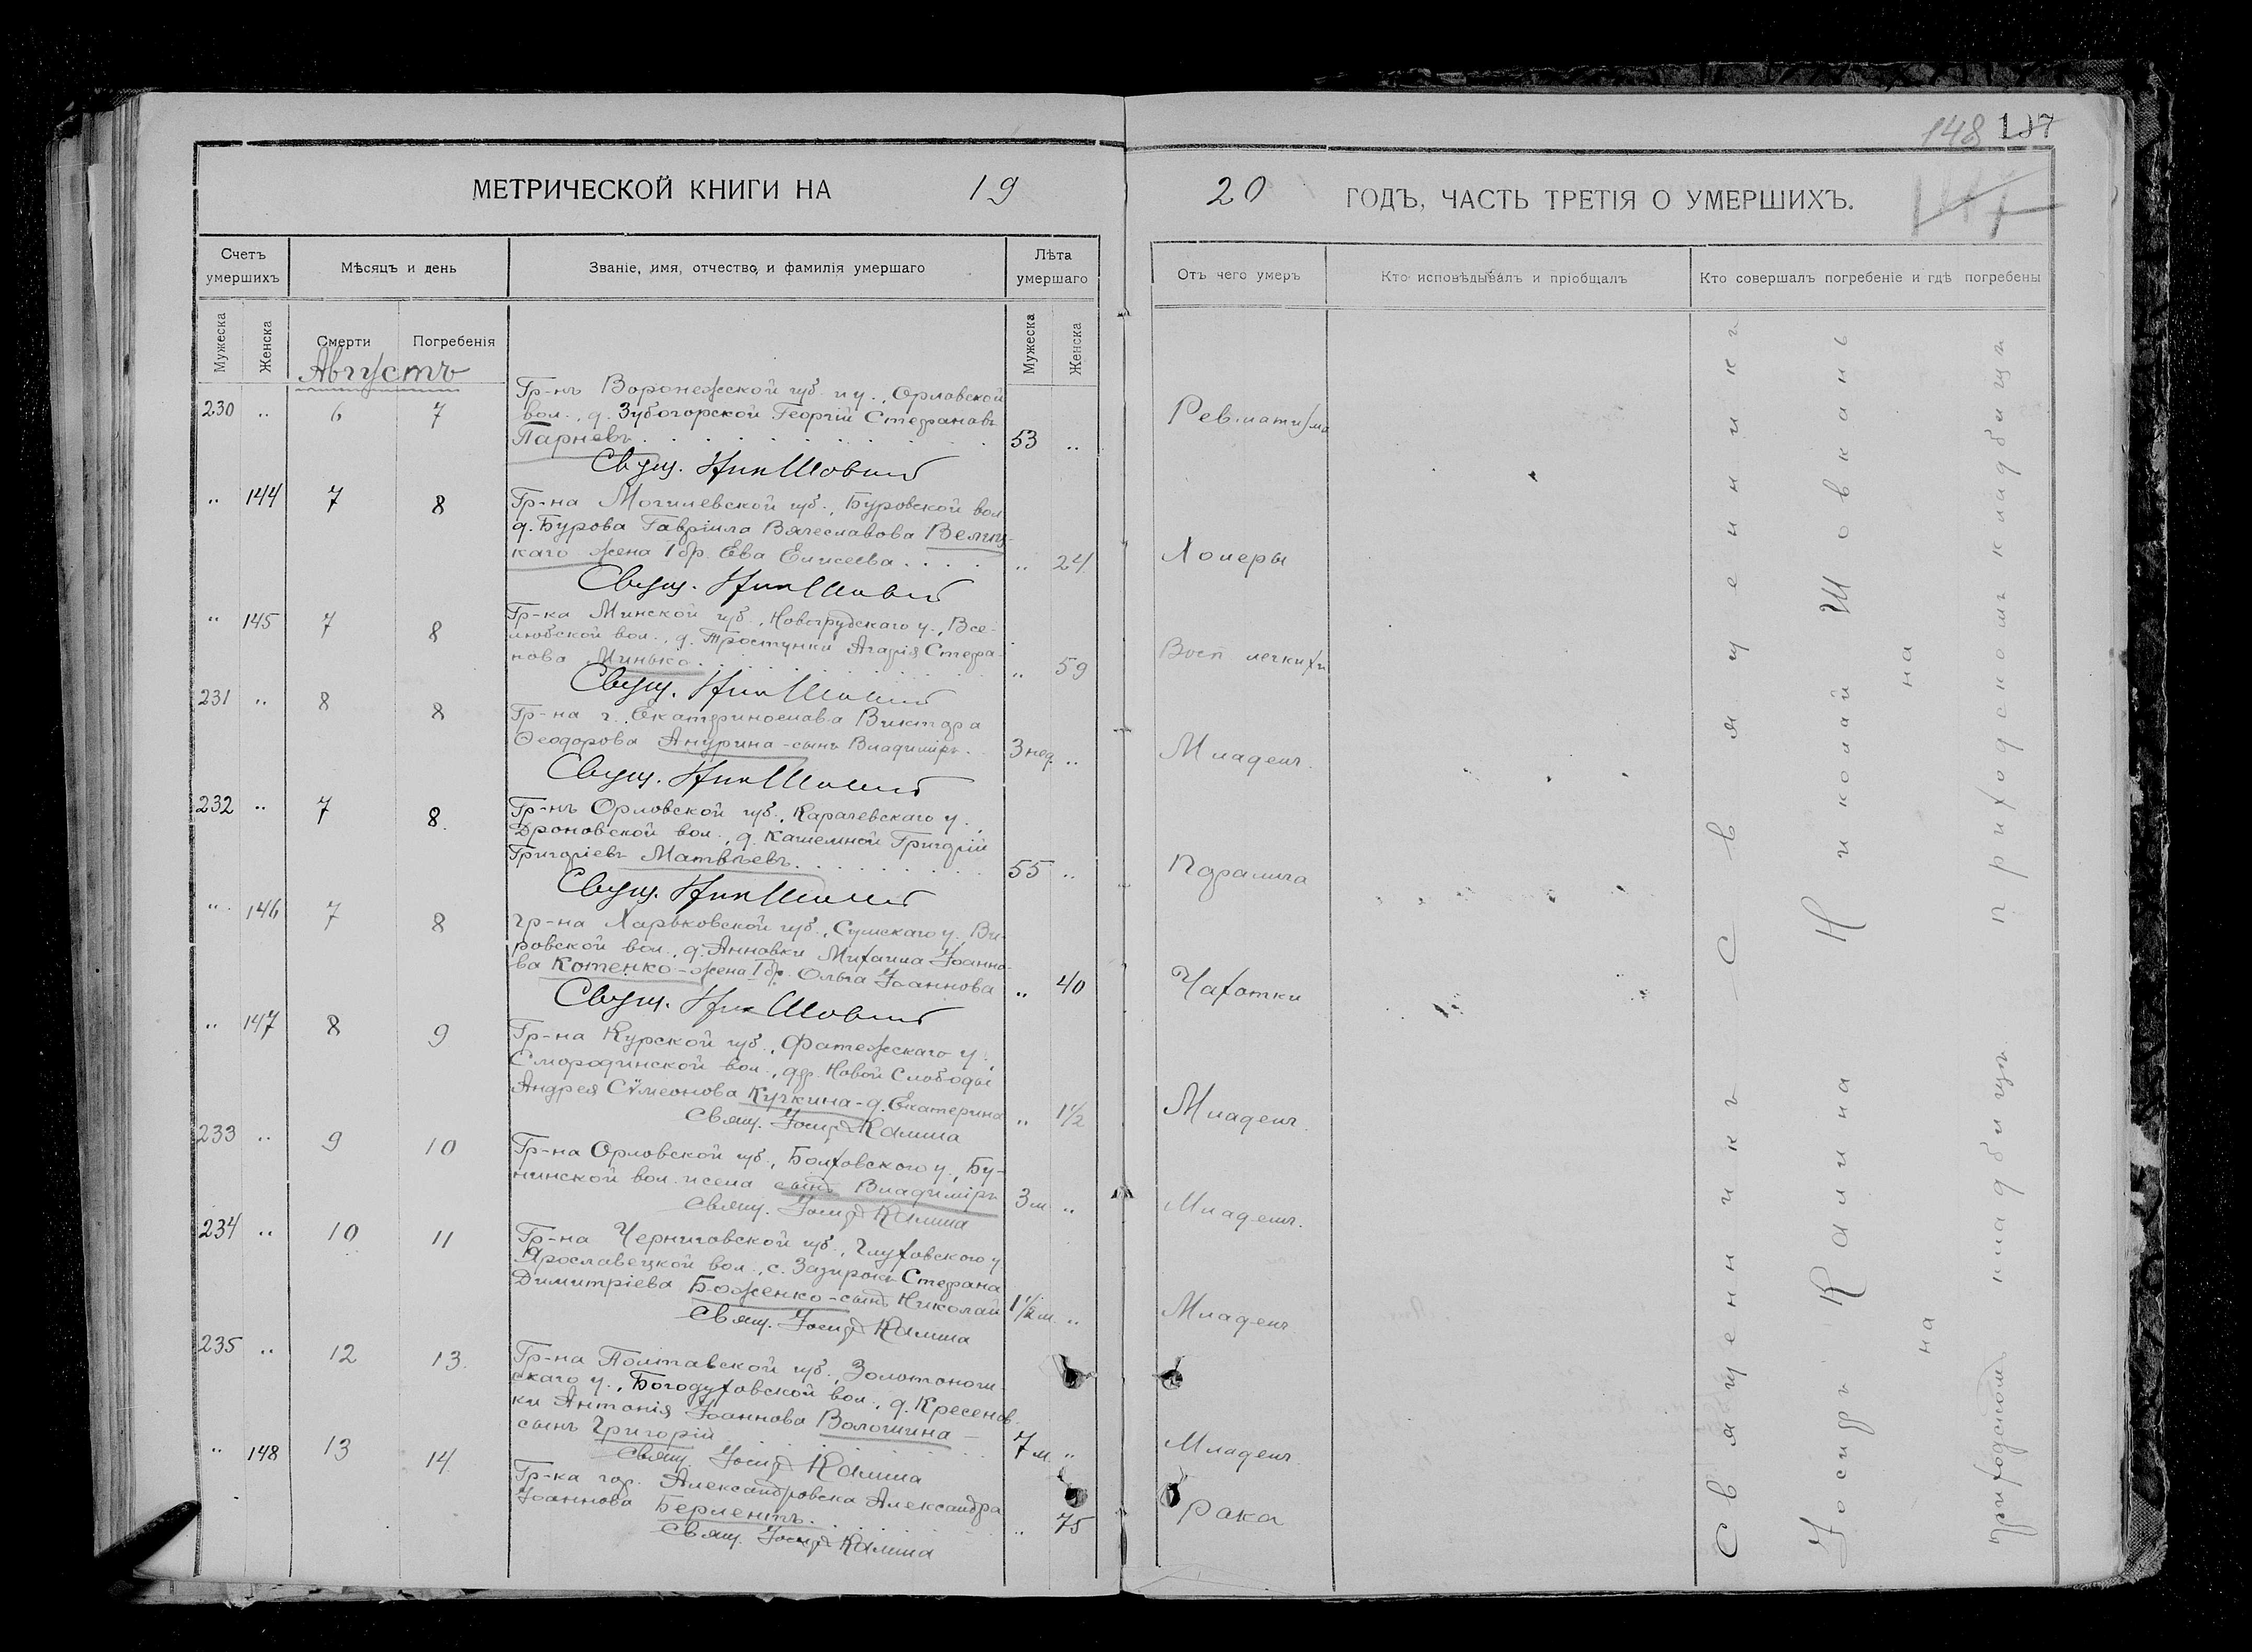 148 137
МЕТРИЧЕСКОЙ КНИГИ НА 19
20 ГОДЪ, ЧАСТЬ ТРЕТІЯ О УМЕРШИХЪ.
Счетъ умершихъ
Мѣсяцъ и день
Званіе, имя, отчество, и фамилія умершаго
Лѣта умершаго
Отъ чего умеръ
Кто исповѣдывалъ и пріобщалъ
Кто совершалъ погребеніе и гдѣ погребены
Мужеска
Женска
Смерти
Погребенія
Мужеска
Женска
Августъ
Гр-нъ Воронежской губ. и у., Орловской
230 „ 6 7 вол., д. Зубогорской Георгій Стефановъ Ревматизма
Парневъ 53 „
Свящ. Ник Шовкан
„ 144 7 8 Гр-на Могилевской губ., Буровской вол.
д. Бурова Гавріила Вячеславова Велиц-
каго жена 1 бр. Ева Елисеева „ 24 Холеры
Свящ. Ник Шовкан
„ 145 7 8 Гр-ка Минской губ., Новогрудскаго у., Все-
любской вол., д. Тростунки Агафія Стефа-
нова Минько „ 59 Восп. легкихъ
Свящ. Ник Шовкан
231 „ 8 8 Гр-на г. Екатеринослава Виктора
Ѳеодорова Анурина - сынъ Владиміръ. 3 нед. „ Младенч.
Свящ. Ник Шовкан
232 „ 7 8. Гр-нъ Орловской губ., Карачевскаго у.,
Дроновской вол., д. Кашемной Григорій
Григоріевъ Матвѣевъ 55 „ Паралича
Свящ. Ник Шовкан
„ 146 7 8 Гр-на Харьковской губ., Сумскаго у. Ви-
ровской вол., д. Анновки Михаила Іоанно-
ва Котенко - жена 1 бр. Ольга Іоаннова „ 40 Чахотки
Свящ. Ник Шовкан
„ 147 8 9 Гр-на Курской губ., Фатежскаго у.,
Смородинской вол., дер. Новой Слободы
Андрея Сѵмеонова Кучкина - д. Екатерина „ 1 1/2 Младенч.
Свящ. Іосиф Калина
233 „ 9 10 Гр-на Орловской губ., Болховского у., Бу-
нинской вол. и села сынъ Владиміръ 3 м. „ Младенч.
Свящ. Іосиф Калина
234 „ 10 11 Гр-на Черниговской губ., Глуховского у
Ярославецкой вол., с. Зазирокъ Стефана
Димитріева Боженко - сынъ Николай 1 1/2 м. „ Младенч.
Свящ. Іосиф Калина
235 „ 12 13. Гр-на Полтавской губ., Золотонош-
скаго у., Богодуховской вол., д. Кресенов-
ки Антонія Іоаннова Волошина -
сынъ Григорій 7 м. „ Младенч.
Свящ. Іосиф Калина
„ 148 13 14. Гр-ка гор. Александровска Александра
Іоаннова Берлентъ. „ 75 Рака
Свящ. Іосиф Калина
Священникъ
Николай Шовкань
на
приходскомъ кладбищѣ
Священникъ
Іосифъ Калина
на
приходскомъ кладбищѣ